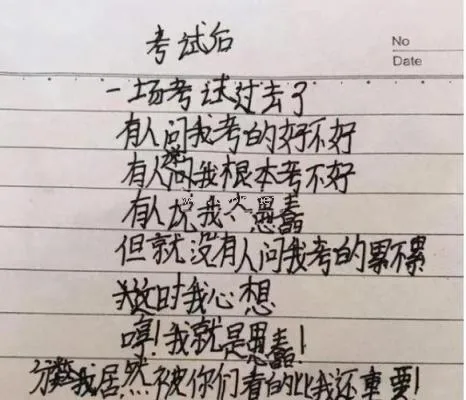 考试后
No
Date
一场考试过去了
有人问我考的好不好
有人问我根本考不好
有人说我 愚蠢
但就没有人问我考的累不累
这时我心想
哼!我就是愚蠢!
分 我居然被你们看的比我还重要!